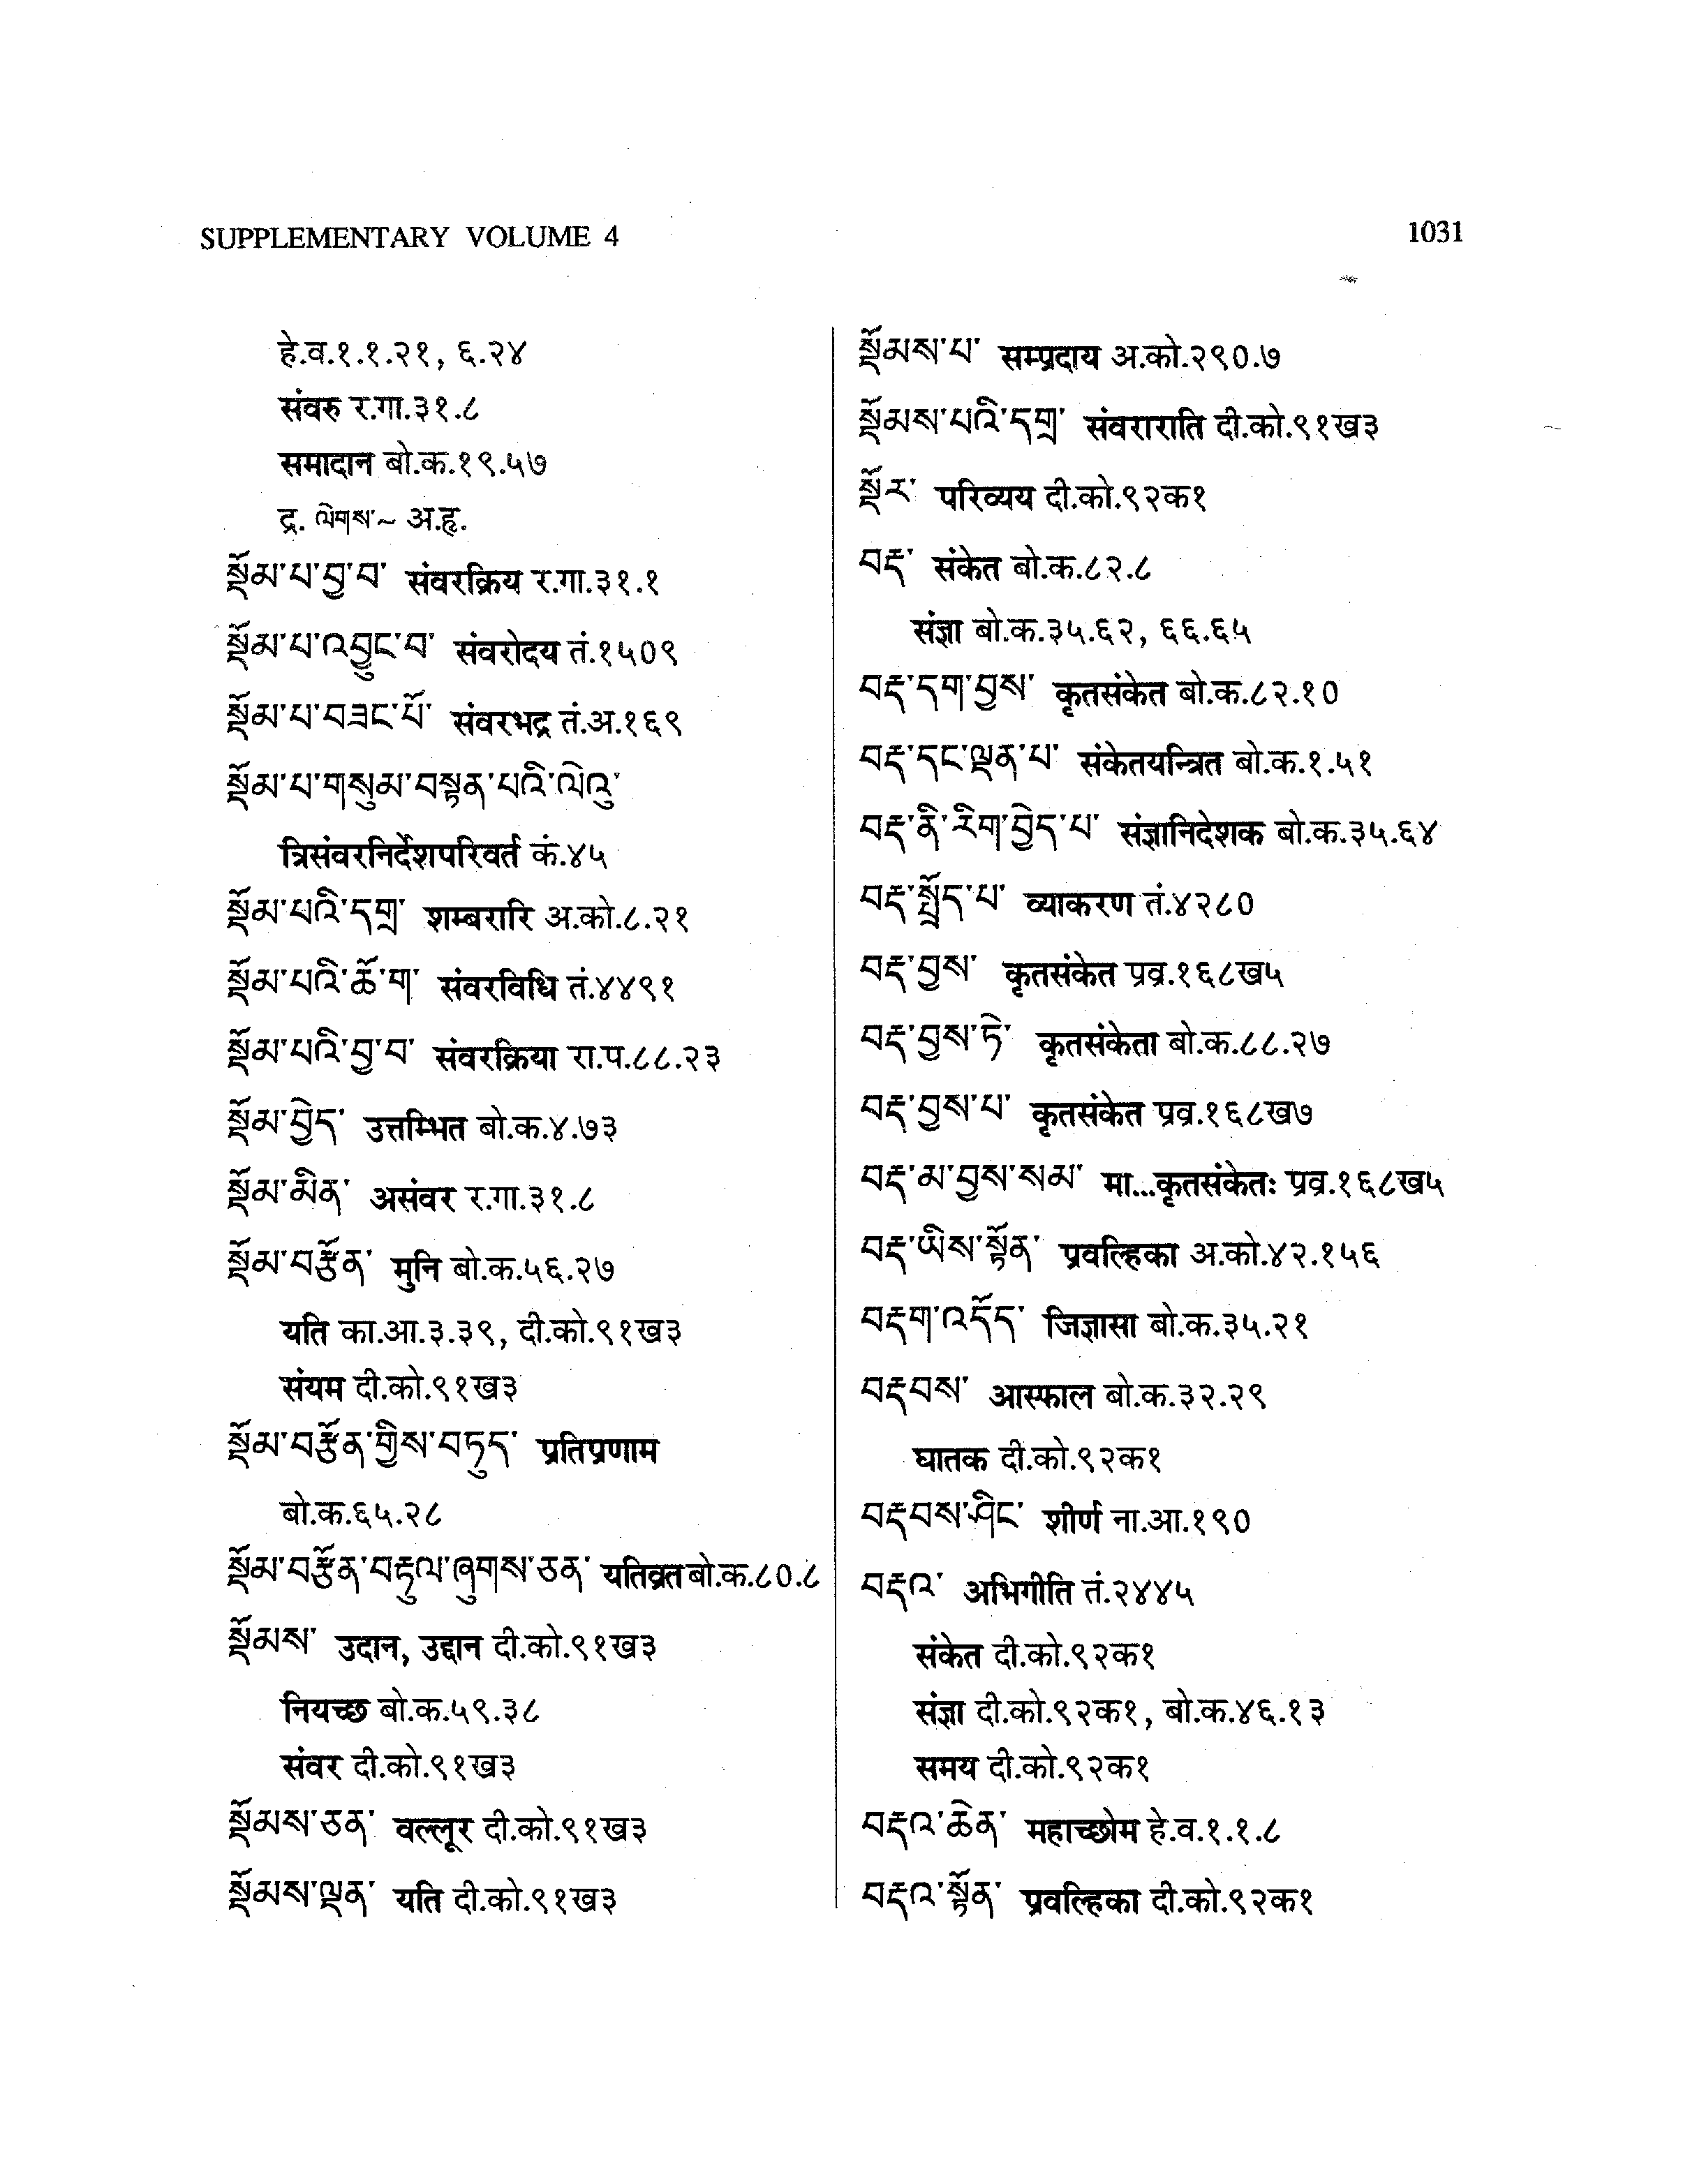 SUPPLEMENTARY VOLUME 4
1031
हे.व.१.१.२१, ६.२४
संवरु र.गा.३१.८
समादान बो.क.१९.५७
द्र. ལེགས་~ अ.हृ.
སྡོམ་པ་བྱ་བ་ संवरक्रिय र.गा.३१.१
སྡོམ་པ་འབྱུང་བ་ संवरोदय तं.१५०९
སྡོམ་པ་བཟང་པོ་ संवरभद्र तं.अ.१६९
སྡོམ་པ་གསུམ་བསྟན་པའི་ལེའུ་
त्रिसंवरनिर्देशपरिवर्त कं.४५
སྡོམ་པའི་དགྲ་ शम्बरारि अ.को.८.२१
སྡོམ་པའི་ཆོ་ག་ संवरविधि तं.४४९१
སྡོམ་པའི་བྱ་བ་ संवरक्रिया रा.प.८८.२३
སྡོམ་བྱེད་ उत्तम्भित बो.क.४.७३
སྡོམ་མིན་ असंवर र.गा.३१.८
སྡོམ་བརྩོན་ मुनि बो.क.५६.२७
यति का.आ.३.३९, दी.को.९१ख३
संयम दी.को.९१ख३
སྡོམ་བརྩོན་གྱིས་བཏུད་ प्रतिप्रणाम
बो.क.६५.२८
སྡོམ་བརྩོན་བརྟུལ་ཞུགས་ཅན་ यतिव्रत बो.क.८०.८
སྡོམས་ उदान, उद्दान दी.को.९१ख३
नियच्छ बो.क.५९.३८
संवर दी.को.९१ख३
སྡོམས་ཅན་ वल्लूर दी.को.९१ख३
སྡོམས་ལྡན་ यति दी.को.९१ख३
སྡོམས་པ་ सम्प्रदाय अ.को.२९०.७
སྡོམས་པའི་དགྲ་ संवराराति दी.को.९१ख३
སྡོར་ परिव्यय दी.को.९२क१
བརྡ་ संकेत बो.क.८२.८
संज्ञा बो.क.३५.६२, ६६.६५
བརྡ་དག་བྱས་ कृतसंकेत बो.क.८२.१०
བརྡ་དང་ལྡན་པ་ संकेतयन्त्रित बो.क.१.५१
བརྡ་ནི་རིག་བྱེད་པ་ संज्ञानिदेशक बो.क.३५.६४
བརྡ་སྤྲོད་པ་ व्याकरण तं.४२८०
བརྡ་བྱས་ कृतसंकेत प्रव्र.१६८ख५
བརྡ་བྱས་ཏེ་ कृतसंकेता बो.क.८८.२७
བརྡ་བྱས་པ་ कृतसंकेत प्रव्र.१६८ख७
བརྡ་མ་བྱས་སམ་ मा...कृतसंकेतः प्रव्र.१६८ख५
བརྡ་ཡིས་སྟོན་ प्रवल्हिका अ.को.४२.१५६
བརྡག་འདོད་ जिज्ञासा बो.क.३५.२१
བརྡབས་ आस्फाल बो.क.३२.२९
घातक दी.को.९२क१
བརྡབས་ཤིང་ शीर्ण ना.आ.१९०
བརྡའ་ अभिगीति तं.२४४५
संकेत दी.को.९२क१
संज्ञा दी.को.९२क१, बो.क.४६.१३
समय दी.को.९२क१
བརྡའ་ཆེན་ महाच्छोम हे.व.१.१.८
བརྡའ་སྟོན་ प्रवल्हिका दी.को.९२क१